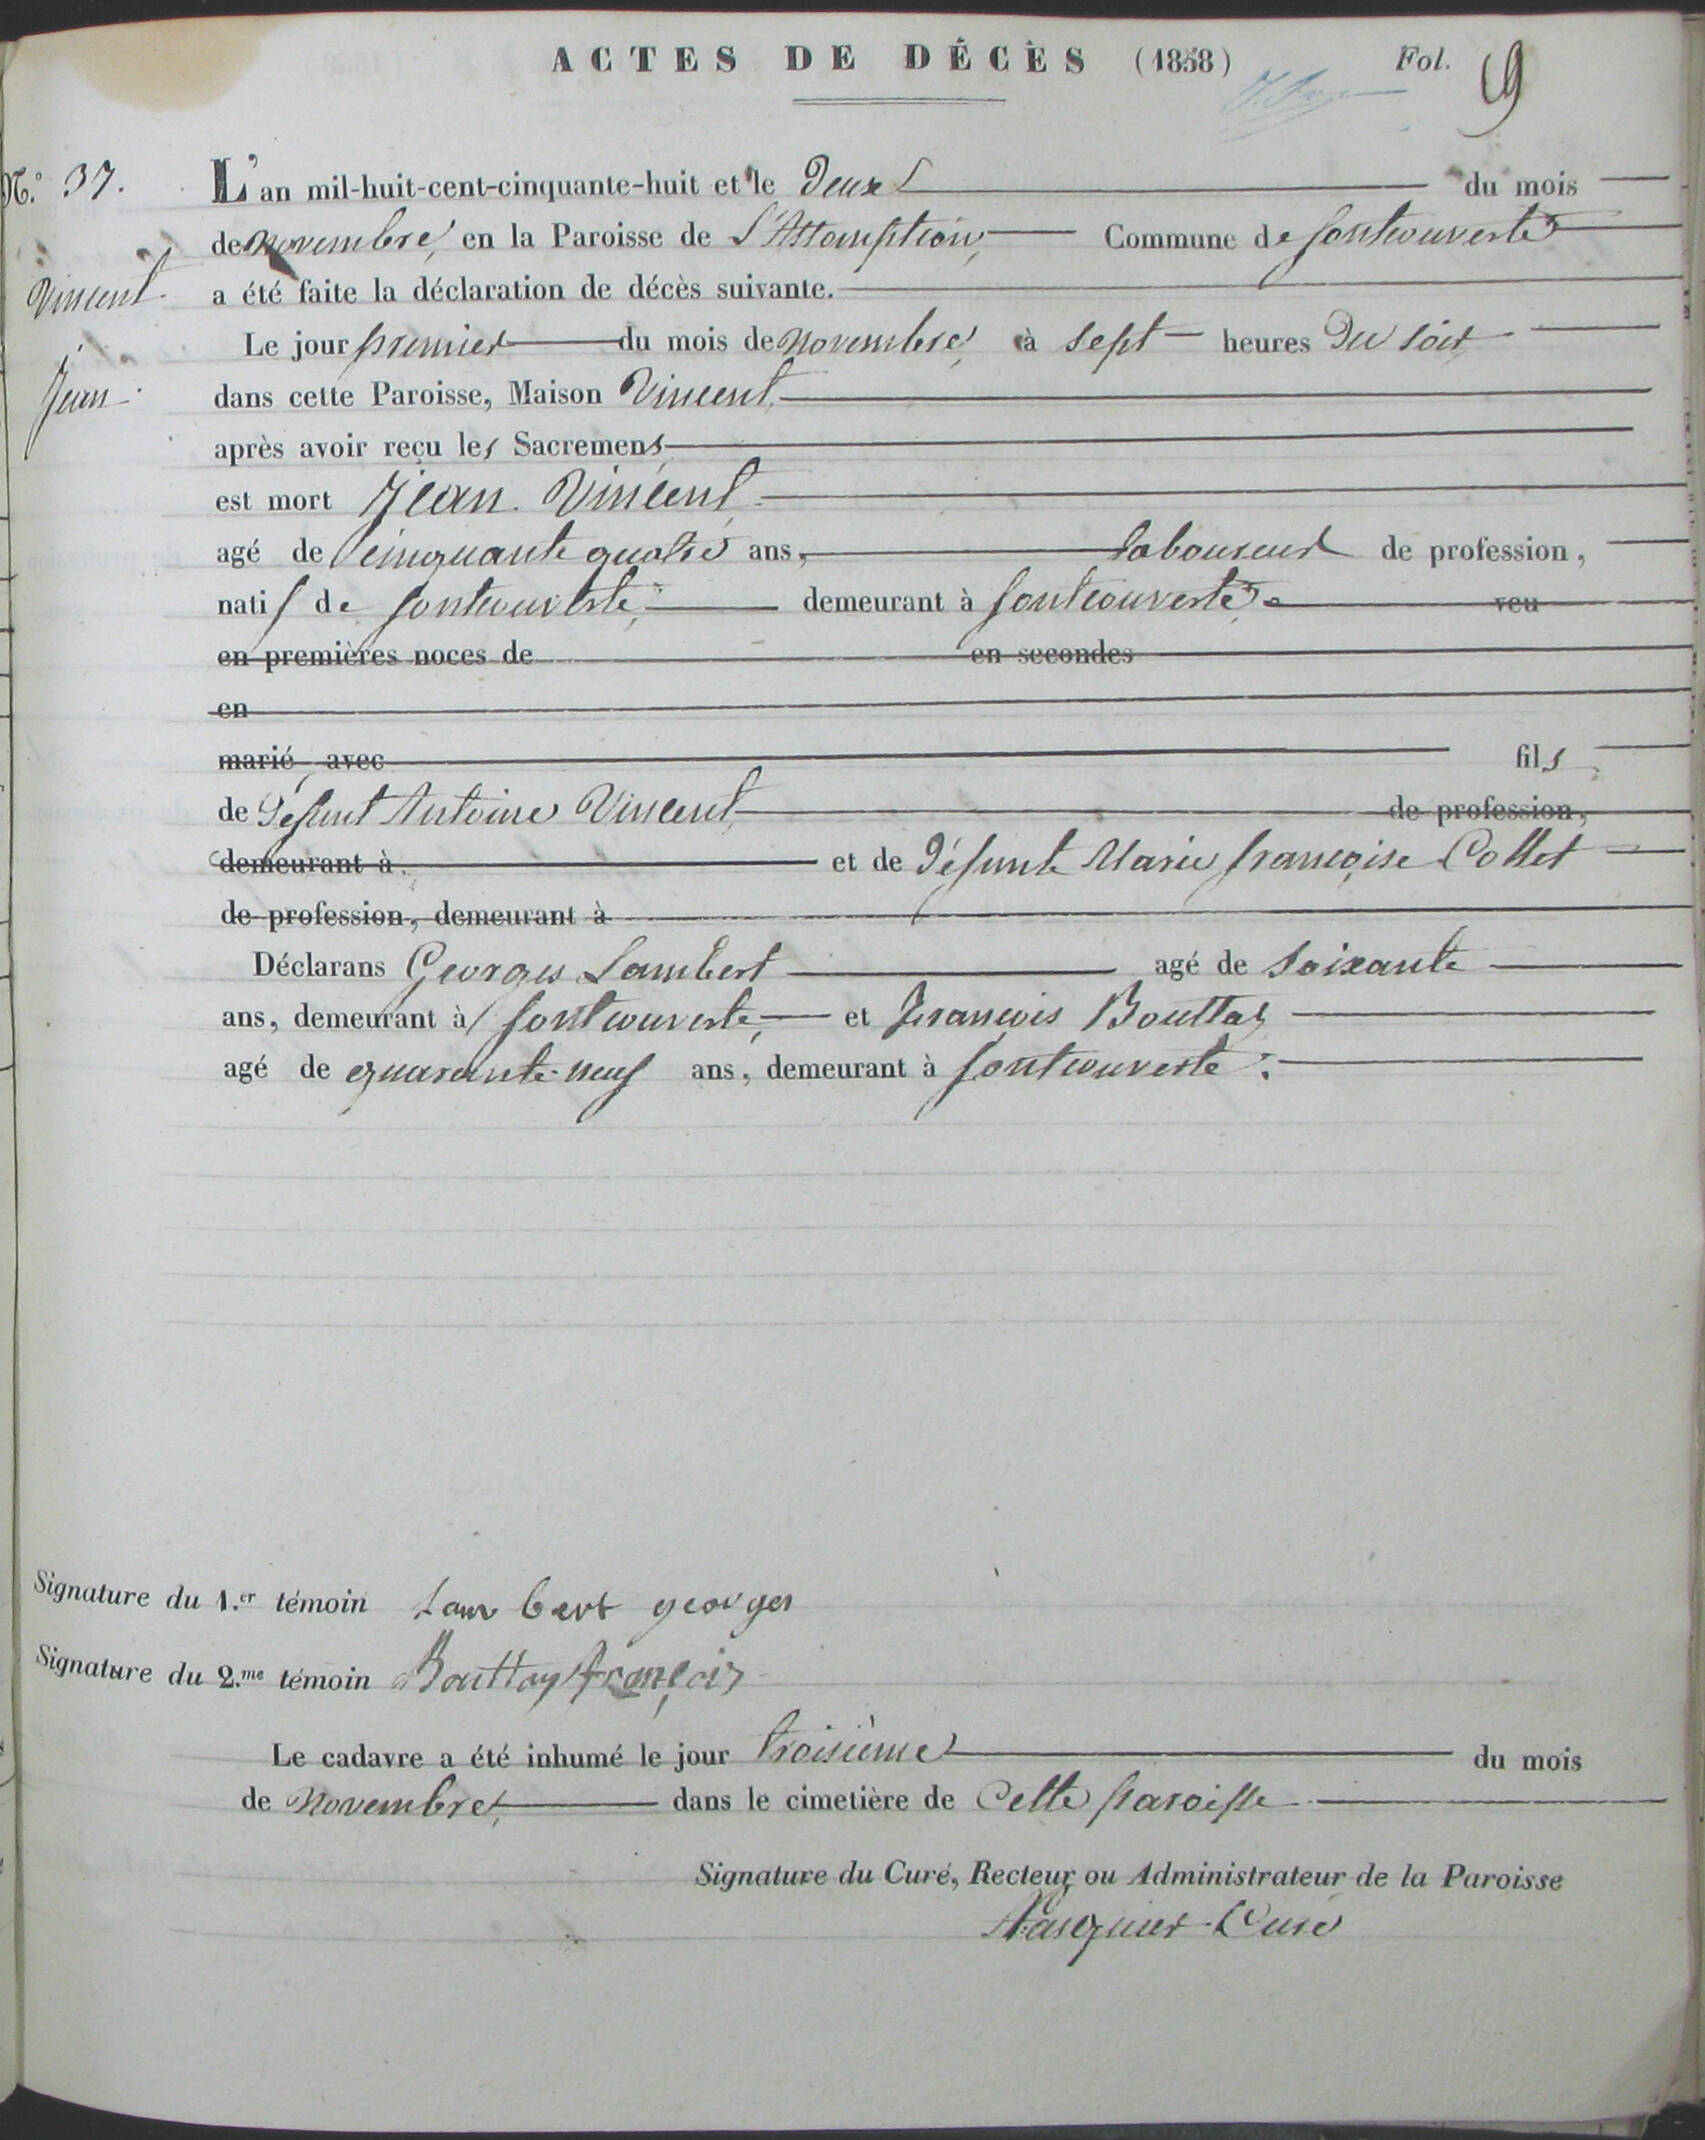 ACTES DE DÉCÈS (1858) Fol. 19
N.º 37. L'an mil-huit-cent-cinquante-huit et le deux du mois
de novembre, en la Paroisse de l'Assomption, Commune de fontcouverte
Vincent a été faite la déclaration de décès suivante.
Le jour premier du mois de novembre, à sept heures du soir
Jean dans cette Paroisse, Maison Vincent,
après avoir reçu les Sacremens
est mort Jean Vincent
agé de cinquante quatre ans, laboureur de profession,
natif de fontcouverte, demeurant à fontcouverte. veu
en premières noces de en secondes
en
marié avec fils
de défunt Antoine Vincent de profession,
demeurant à et de défunte Marie françoise Collet
de profession, demeurant à
Déclarans Georges Lambert agé de soixante
ans, demeurant à fontcouverte, et François Bouttaz
agé de quarante-neuf ans, demeurant à fontcouverte.
Signature du 1.er témoin Lambert georges
Signature du 2.me témoin Bouttaz françois
Le cadavre a été inhumé le jour troisième du mois
de novembre, dans le cimetière de cette paroisse
Signature du Curé, Recteur ou Administrateur de la Paroisse
Pasquier Curé